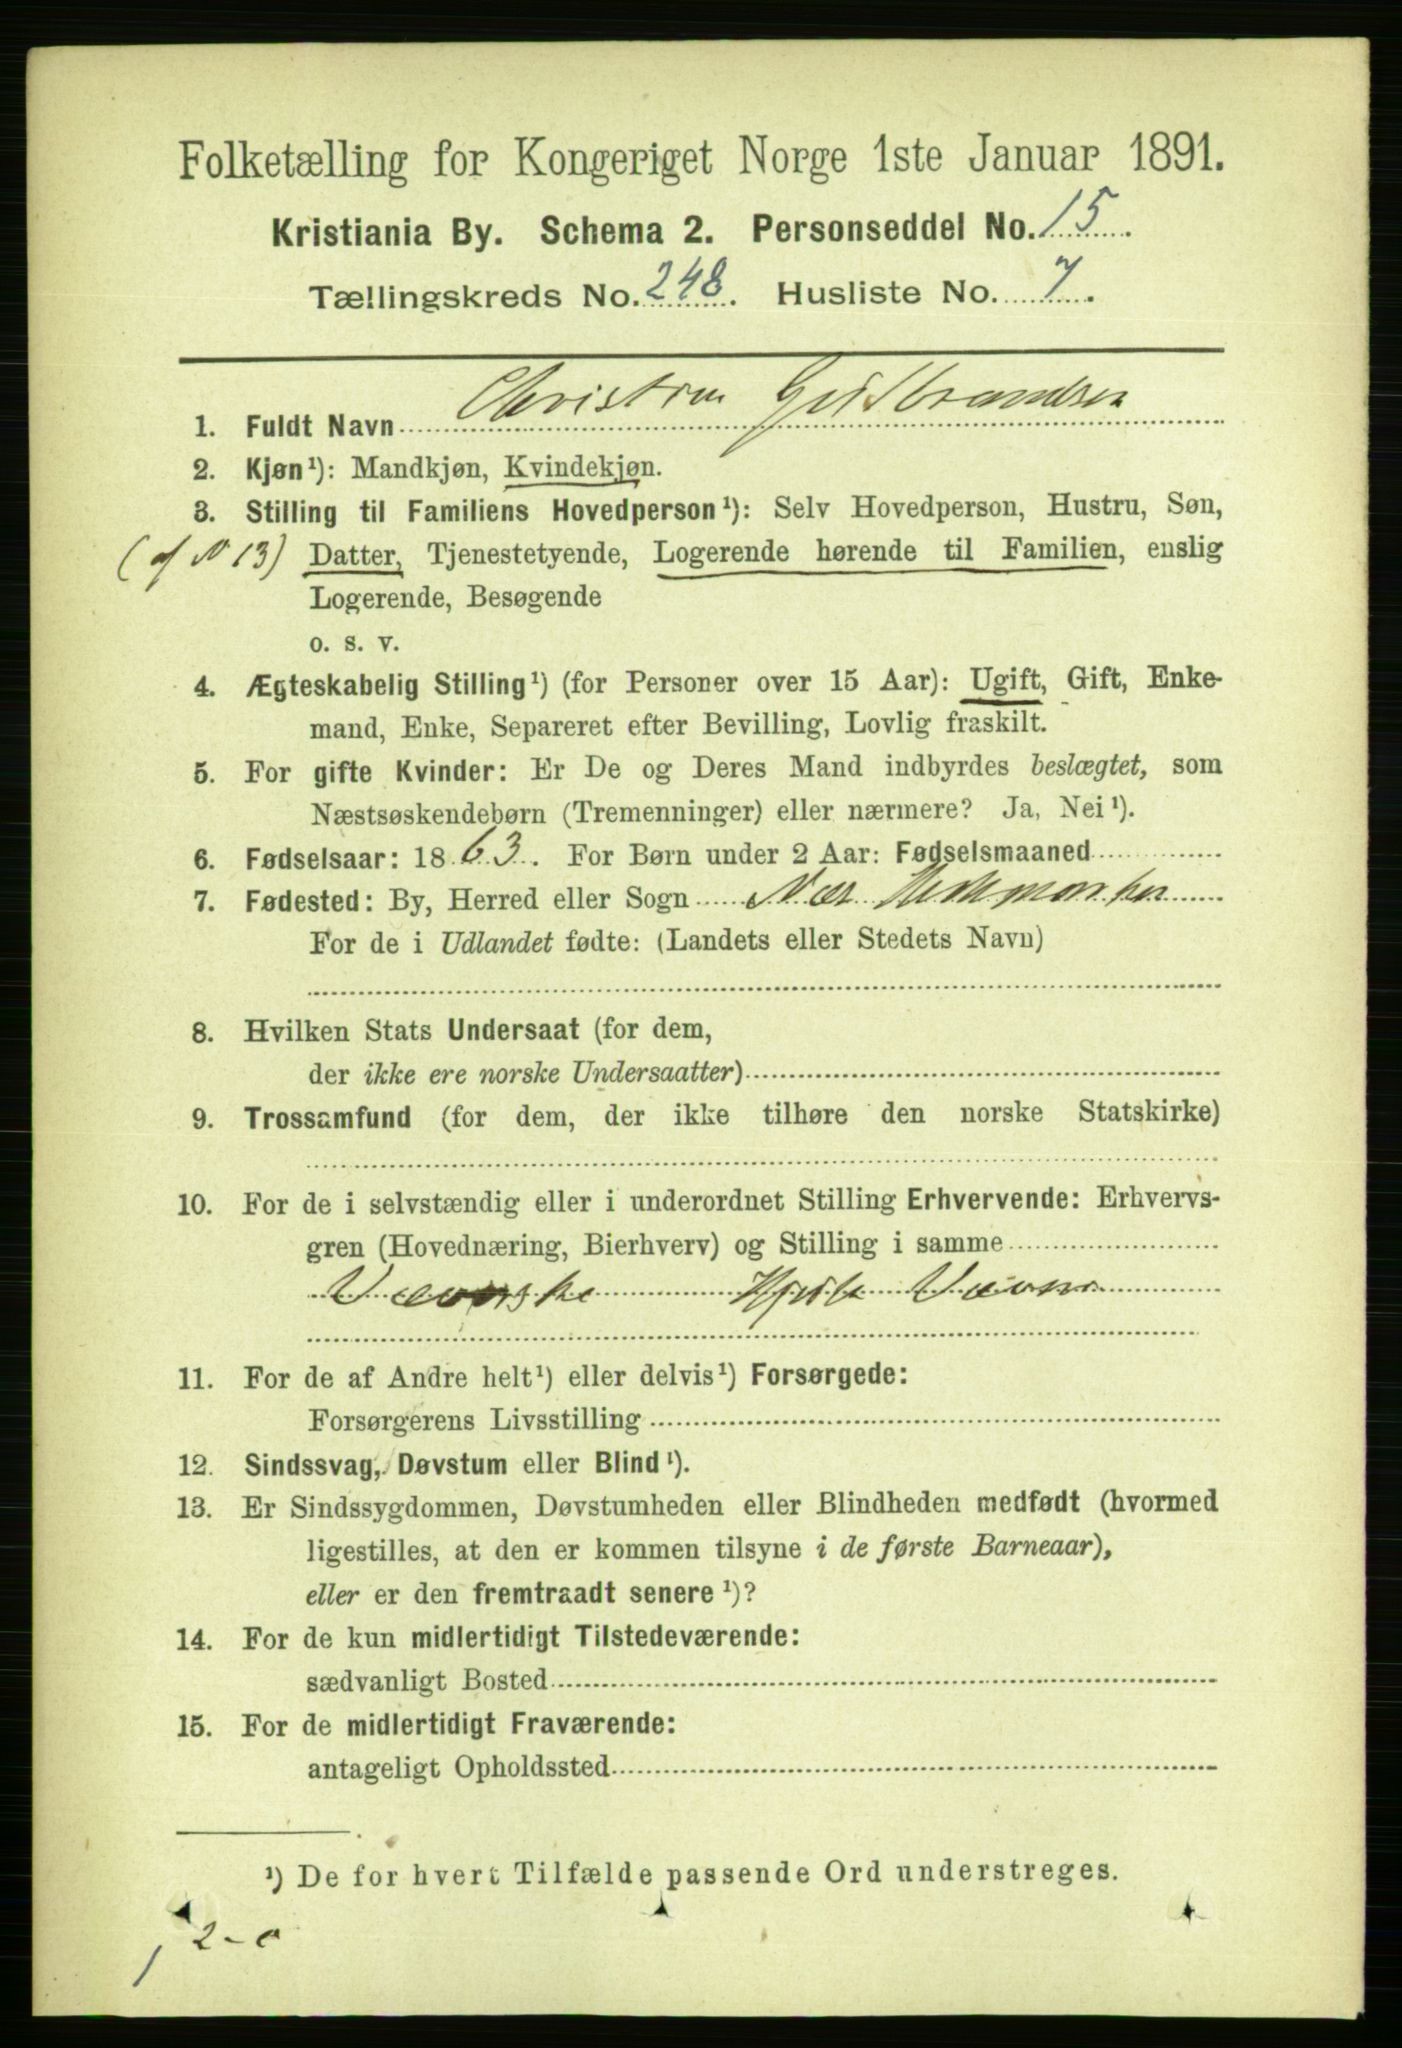 Folketælling for Kongeriget Norge 1ste Januar 1891.
Kristiania By. Schema 2. Personseddel No. 15.
Tællingskreds No. 248. Husliste No. 7.
1. Fuldt Navn Christine Gulbrandsen
2. Kjøn¹): Mandkjøn, Kvindekjøn.
3. Stilling til Familiens Hovedperson¹): Selv Hovedperson, Hustru, Søn,
(af N 13) Datter, Tjenestetyende, Logerende hørende til Familien, enslig
Logerende, Besøgende
o. s. v.
4. Ægteskabelig Stilling¹) (for Personer over 15 Aar): Ugift, Gift, Enke-
mand, Enke, Separeret efter Bevilling, Lovlig fraskilt.
5. For gifte Kvinder: Er De og Deres Mand indbyrdes beslægtet, som
Næstsøskendebørn (Tremenninger) eller nærmere? Ja, Nei¹).
6. Fødselsaar: 1863. For Børn under 2 Aar: Fødselsmaaned
7. Fødested: By, Herred eller Sogn Næs Hedemarken
For de i Udlandet fødte: (Landets eller Stedets Navn)
8. Hvilken Stats Undersaat (for dem,
der ikke ere norske Undersaatter)
9. Trossamfund (for dem, der ikke tilhøre den norske Statskirke)
10. For de i selvstændig eller i underordnet Stilling Erhvervende: Erhvervs-
gren (Hovednæring, Bierhverv) og Stilling i samme
Væverske Hjula Væveri
11. For de af Andre helt¹) eller delvis¹) Forsørgede:
Forsørgerens Livsstilling
12. Sindssvag, Døvstum eller Blind¹).
13. Er Sindssygdommen, Døvstumheden eller Blindheden medfødt (hvormed
ligestilles, at den er kommen tilsyne i de første Barneaar),
eller er den fremtraadt senere¹)?
14. For de kun midlertidigt Tilstedeværende:
sædvanligt Bosted
15. For de midlertidigt Fraværende:
antageligt Opholdssted
¹) De for hvert Tilfælde passende Ord understreges.
2-0
1